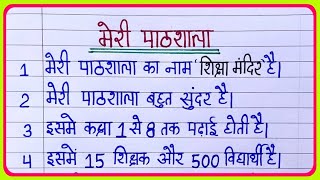 मेरी पाठशाला
1 मेरी पाठशाला का नाम 'शिक्षा मंदिर' है।
2 मेरी पाठशाला बहुत सुंदर है।
3 इसमे कक्षा 1 से 8 तक पढ़ाई होती है।
4 इसमें 15 शिक्षक और 500 विद्यार्थी है।